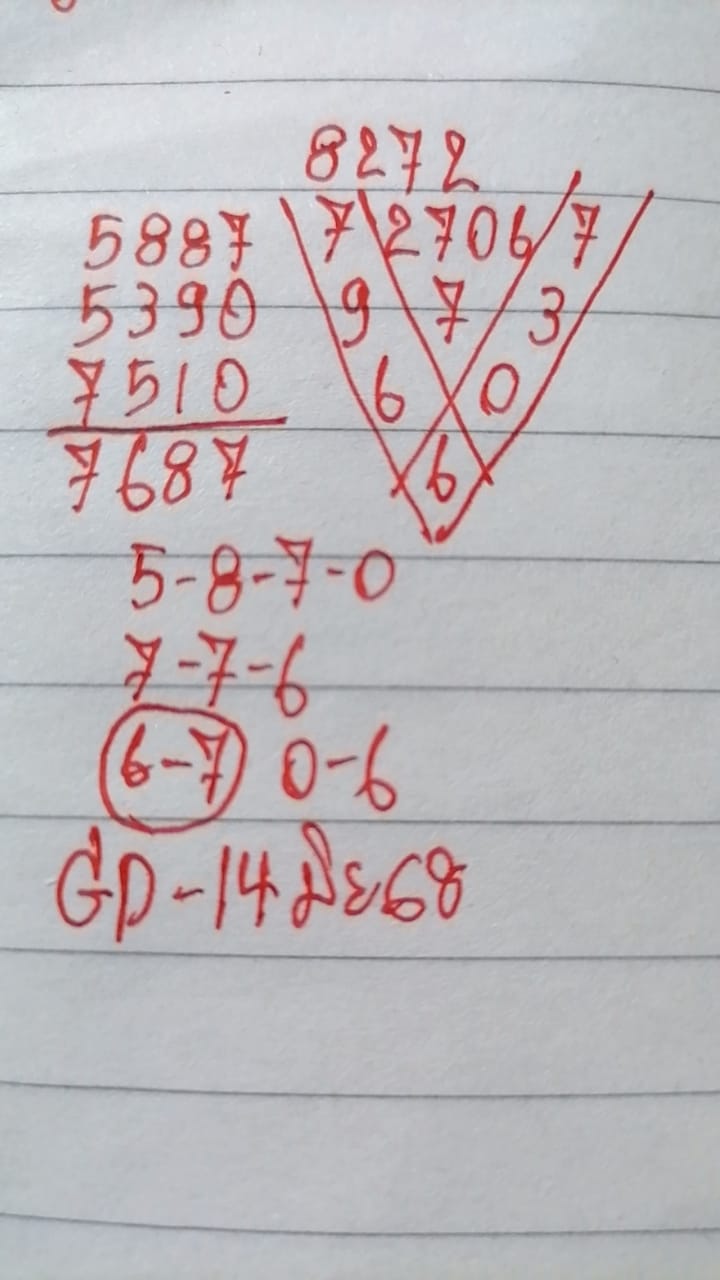 8272
5887
5390
7510
7687
7 2706 7
9 7 3
6 0
6
5-8-7-0
7-7-6
6-7 0-6
GD-14 มิย68